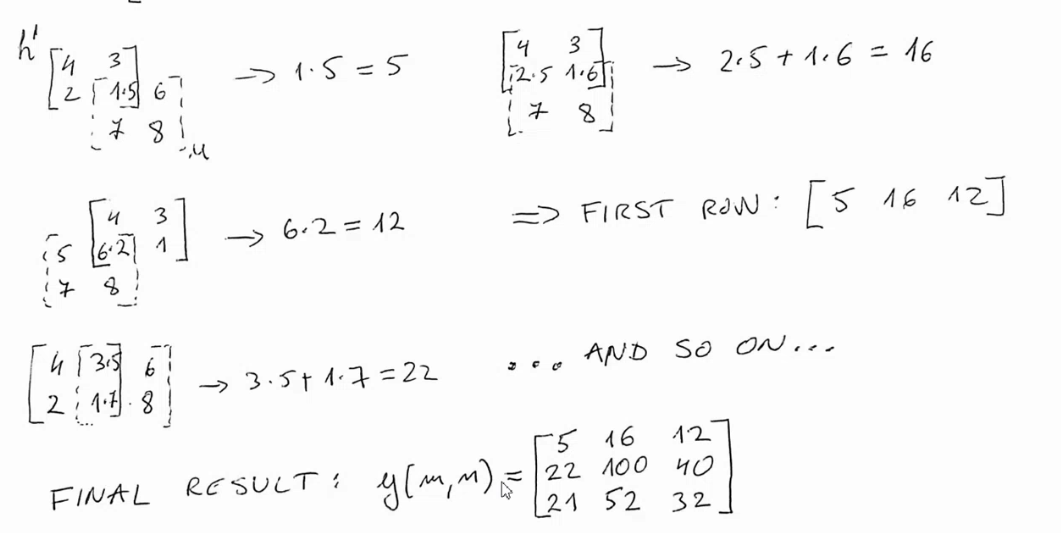 h'
[4 3
2 1·5] 6
7 8
,u
→ 1·5 = 5
[4 3]
[2·5 1·6]
7 8
→ 2·5 + 1·6 = 16
[4 3
5 [6·2] 1]
7 8
→ 6·2 = 12
=> FIRST ROW: [5 16 12]
[4 [3·5] 6
2 1·7] · 8
→ 3·5 + 1·7 = 22
... AND SO ON...
FINAL RESULT: y(m,n) = [5 16 12
22 100 40
21 52 32]